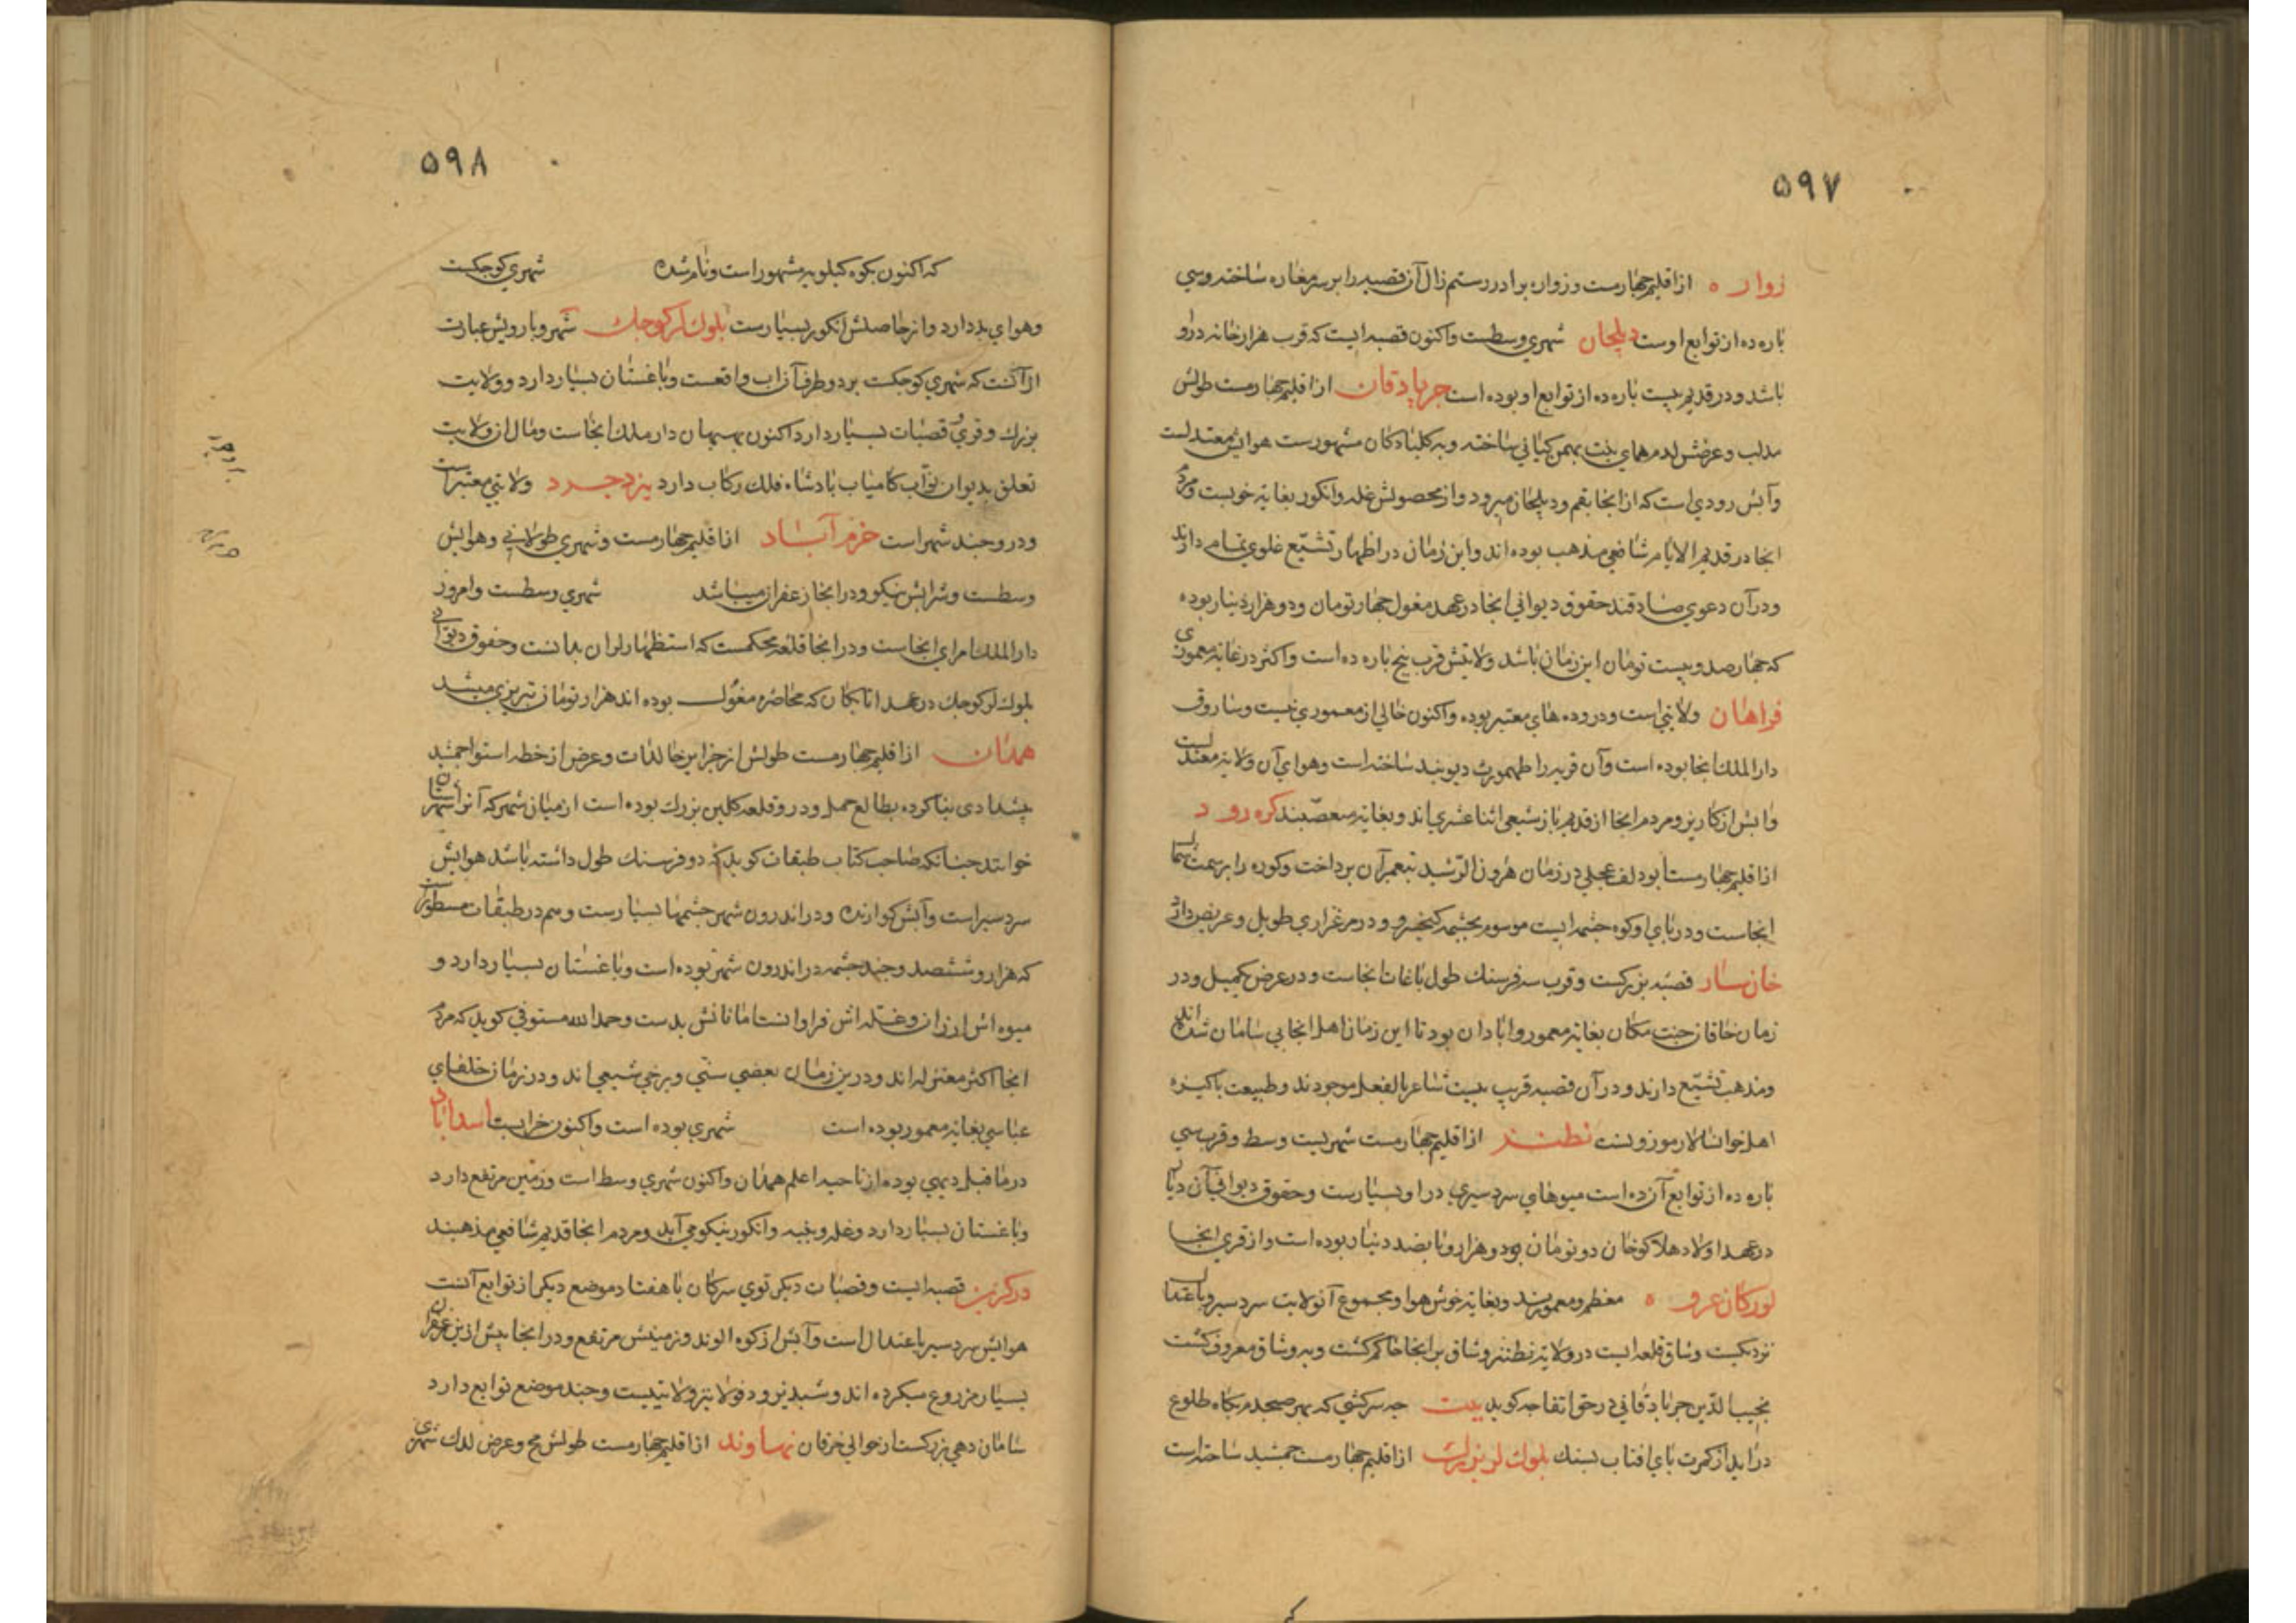 ۵۹۷
زواره از اقلیم چهارمست و زواره برادر رستم زال آن قصبه را بر سر مغاره ساخته و سی
پاره ده از توابع اوست دلیجان شهری وسطست و اکنون قصبه ایست که قرب هزار خانه در او
باشد و در قدیم بیست پاره ده از توابع او بوده است جرپادقان از اقلیم چهارمست طولش
و عرضش لد همای بنت بهمن کیانی ساخته و به کلبادکان مشهورست هوایش معتدلست
و آبش رودی است که از انجا بقم و دیلجان میرود و از محصولش غله و انکور بغایة خوبست و مردم
انجا در قدیم الایام شافعی مذهب بوده اند و این زمان در اظهار تشیّع غلوی تمام دارند
و در آن دعوی صادقند حقوق دیوانی انجا در عهد مغول چهار تومان و دو هزار دینار بوده
که چهار صد و بیست تومان این زمان باشد ولایتش قرب پنج پاره ده است و اکثر در غایة معموری
فراهان ولایتی است و در و ده های معتبر بوده و اکنون خالی از معموری نیست و ساروق
دار الملک انجا بوده است و آن قریه را طهمورث دیوبند ساخته است و هوای آن ولایة معتدلست
و ابش از کاریز و مردم انجا از قدیم باز شیعی اثنا عشری اند و بغایة متعصّبند کره رود
از اقلیم چهارمست ابودلف عجلی در زمان هرون الرّشید بتعمیر آن پرداخت و کوه را بر سمت شمال
انجاست و در پای او کوه چشمه ایست موسوم بچشمه کیخسرو و در مرغزاری طویل و عریض دارد
خان سار قصبه بزرکست و قرب سه فرسنک طول باغات انجاست و در عرض یکمیل و در
زمان خاقان جنت مکان بغایة معمور و ابادان بود تا این زمان اهل انجا بی سامان شده اند
و مذهب تشیّع دارند و در آن قصبه قریب بیست شاعر بالفعل موجودند و طبیعت پاکیزه
اهل خوانسار موزونست نطنز از اقلیم چهارمست شهریست وسط و قرب سی
پاره ده از توابع آن ده است میوهای سردسیری در او بسیارست و حقوق دیوانی آن دیار
در عهد اولاد هلاکوخان دو تومان و دو هزار و پانصد دینار بوده است و از قری انجا
معظم و معمورند و بغایة خوش هوا و مجموع آنولایت سردسیر و باعتدال
نزدیکست وشاق قلعه ایست در ولایة نطنز وشاق بر انجا حاکم کشت و به وشاق معروف کشت
نجیب الدّین جرپادقانی در حق انقلعه کوید بیت چه سرکشی که بهر صبحدم بکاه طلوع
در اید از کمرت پای افتاب بسنک بلوک لر بزرک از اقلیم چهارمست جمشید ساخته است
۵۹۸
که اکنون بکوه کیلویه مشهور است و نام شده شهری کوچکست
و هوای بد دارد و از حاصلش انکور بسیارست بلوک لر کوچک شهر وبارویش عبارت
از آنست که شهری کوچکست بر دو طرف آن آب واقعست و باغستان بسیار دارد و ولایت
بزرک و قری و قصبات بسیار دارد اکنون دار ملک انجاست و مال از ولایت
تعلق بدیوان نواب کامیاب پادشاه فلک رکاب دارد یزدجرد ولایتی معتبر است
و در و چند شهر است خرم آباد از اقلیم چهارمست و شهری طولانی و هوایش
وسطست و شرابش نیکو و در انجا زعفران میباشد شهری وسطست و امروز
دار الملک امرای انجاست و در انجا قلعه محکمست که استظهار لران بدانست و حقوق دیوانی
بلوک لر کوچک در عهد اتابکان که محاصره مغول بوده اند هزار تومان تبریزی میشد
همدان از اقلیم چهارمست طولش از جزایر خالدات و عرض از خطه استوا جمشید
پیشدادی بنا کرده بطالع حمل و در و قلعه کلین بزرک بوده است از میان شهر که آنرا شهرستان
خوانند چنانکه صاحب کتاب طبقات کوید که دو فرسنک طول داشته باشد هوایش
سردسیر است و آبش کوارنده و در اندرون شهر چشمها بسیارست و هم در طبقات مسطورست
که هزار و ششصد و چند چشمه در اندرون شهر بوده است و باغستان بسیار دارد و
میوه اش ارزان و غله اش فراوانست اما نانش بدست و حمد الله مستوفی کوید که مردم
انجا اکثر معتزله اند و درین زمان بعضی سنّی و برخی شیعی اند و در زمان خلفای
عباسی بغایة معمور بوده است شهری بوده است و اکنون خرابست اسداباد
در ماقبل دیهی بوده از ناحیه اعلم همدان و اکنون شهری وسط است و زمین مرتفع دارد
و باغستان بسیار دارد و غله و پنبه و انکور نیکو می آید و مردم انجا قدیم شافعی مذهبند
درکزین قصبه ایست و قصبات دیکر توی سرکان با هفتاد موضع دیکر از توابع آنست
هوایش سردسیر باعتدال است و آبش از کوه الوند و زمینش مرتفع و در انجا پیش ازین زعفران
بسیار مزروع میکرده اند و شبدیز و دفولا نیز ولایتیست و چند موضع توابع دارد
سامان دهی بزرکست از حوالی خرقان نهاوند از اقلیم چهارمست طولش مح و عرض لدک شهری